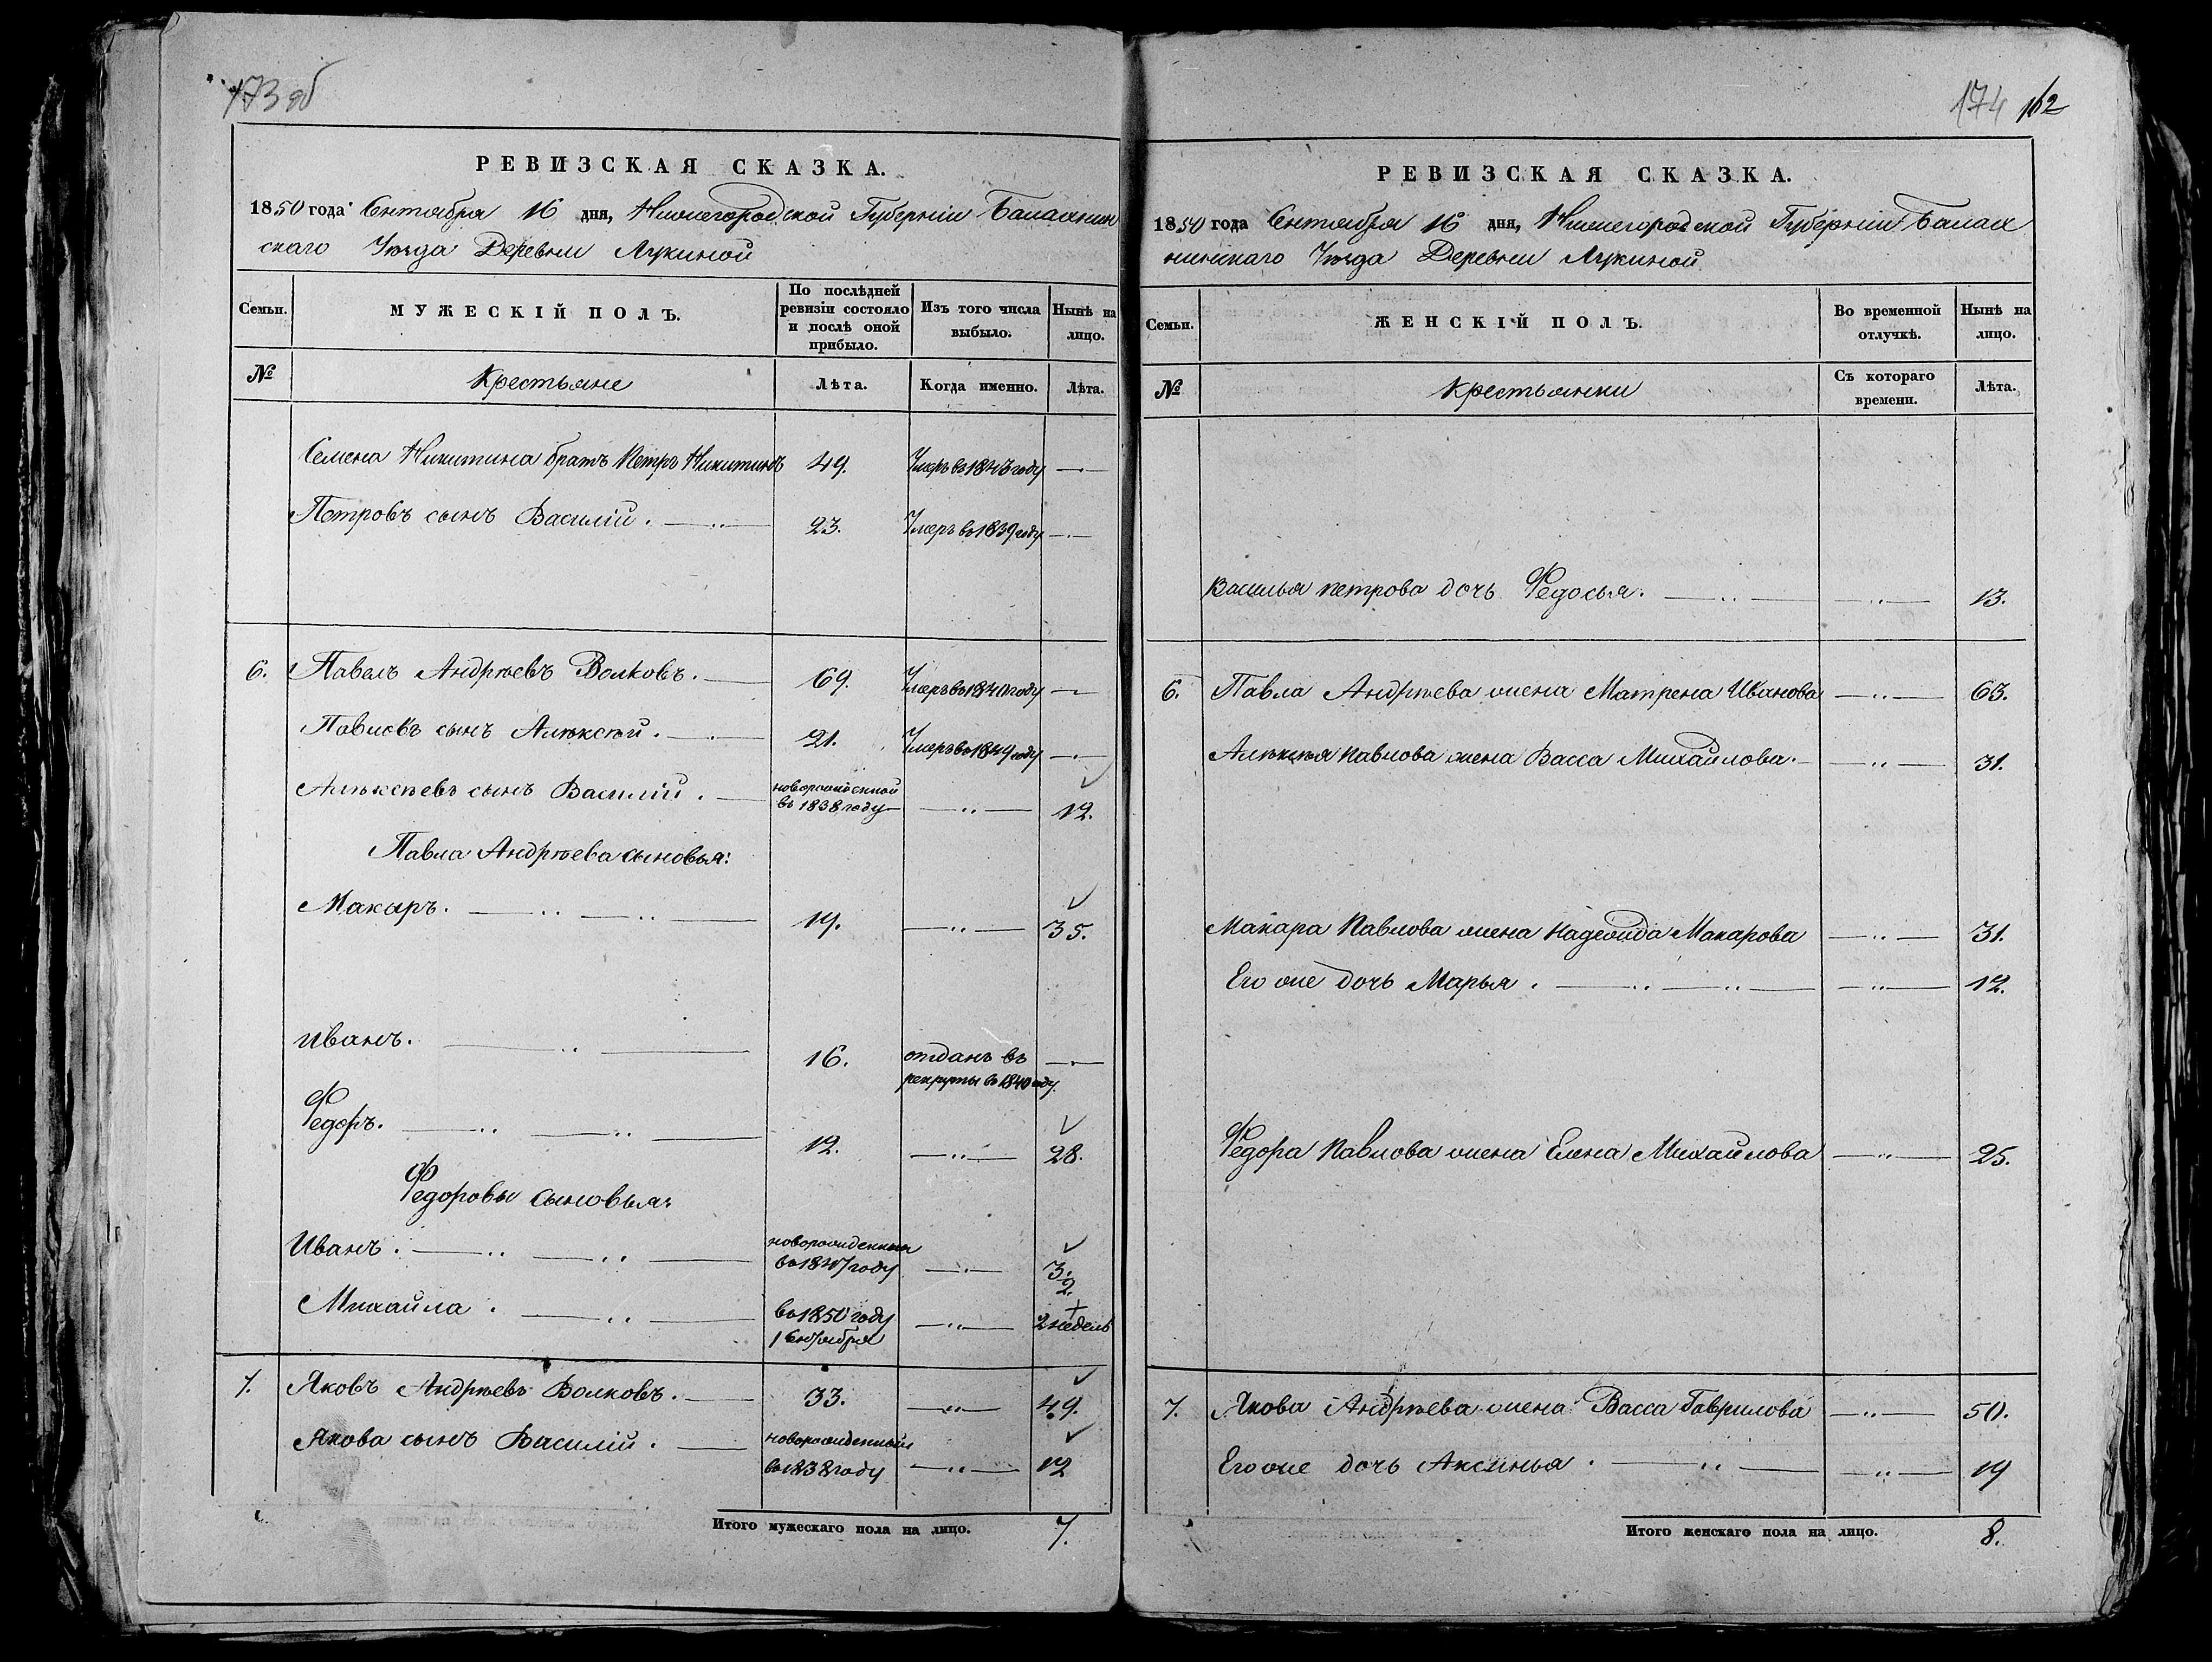 173 об
РЕВИЗСКАЯ СКАЗКА.
1850 года Сентября 16 дня, Нижегородской Губерніи Балахнин
скаго Уѣзда Деревни Лукиной
Семьи.
МУЖЕСКІЙ ПОЛЪ.
По послѣдней
ревизіи состояло
и послѣ оной
прибыло.
Изъ того числа
выбыло.
Нынѣ на
лицо.
№
Крестьяне
Лѣта.
Когда именно.
Лѣта.
Семена Никитина братъ Петръ Никитинъ 49. Умеръ въ 1843 году
Петровъ сынъ Василій. 23. Умеръ въ 1839 году
6. Павелъ Андрѣевъ Волковъ. 69. Умеръ въ году
Павловъ сынъ Алѣксѣй. 21. Умеръ въ 1849 году
Алѣксѣевъ сынъ Василій. новорожденной
въ 1838 году 12.
Павла Андрѣева сыновья:
Макаръ. 19. 35.
Иванъ. 16. отданъ въ
рекруты въ 1840 году.
Федоръ. 12. 28.
Федоровы сыновья:
Иванъ. новорожденный
въ 1847 году 3.
2.
Михайла. въ 1850 году
1 Сентября 2 недель
7. Яковъ Андрѣевъ Волковъ. 33. 49.
Якова сынъ Василій. новорожденный
въ 1838 году 12
Итого мужескаго пола на лицо. 7.
174 162
РЕВИЗСКАЯ СКАЗКА.
1850 года Сентября 16 дня, Нижегородской Губерніи Балах
нинскаго Уѣзда Деревни Лукиной
Семьи.
ЖЕНСКІЙ ПОЛЪ.
Во временной
отлучкѣ.
Нынѣ на
лицо.
№
Крестьянки
Съ котораго
времени.
Лѣта.
Василья Петрова дочь Федосья. 13.
6. Павла Андрѣева жена Матрена Иванова 63.
Алѣксѣя Павлова жена Васса Михайлова. 31.
Макара Павлова жена Надежда Макарова 31.
Его же дочь Марья. 12.
Федора Павлова жена Елена Михайлова 25.
7. Якова Андрѣева жена Васса Гаврилова 50.
Его же дочь Аксинья. 19
Итого женскаго пола на лицо. 8.